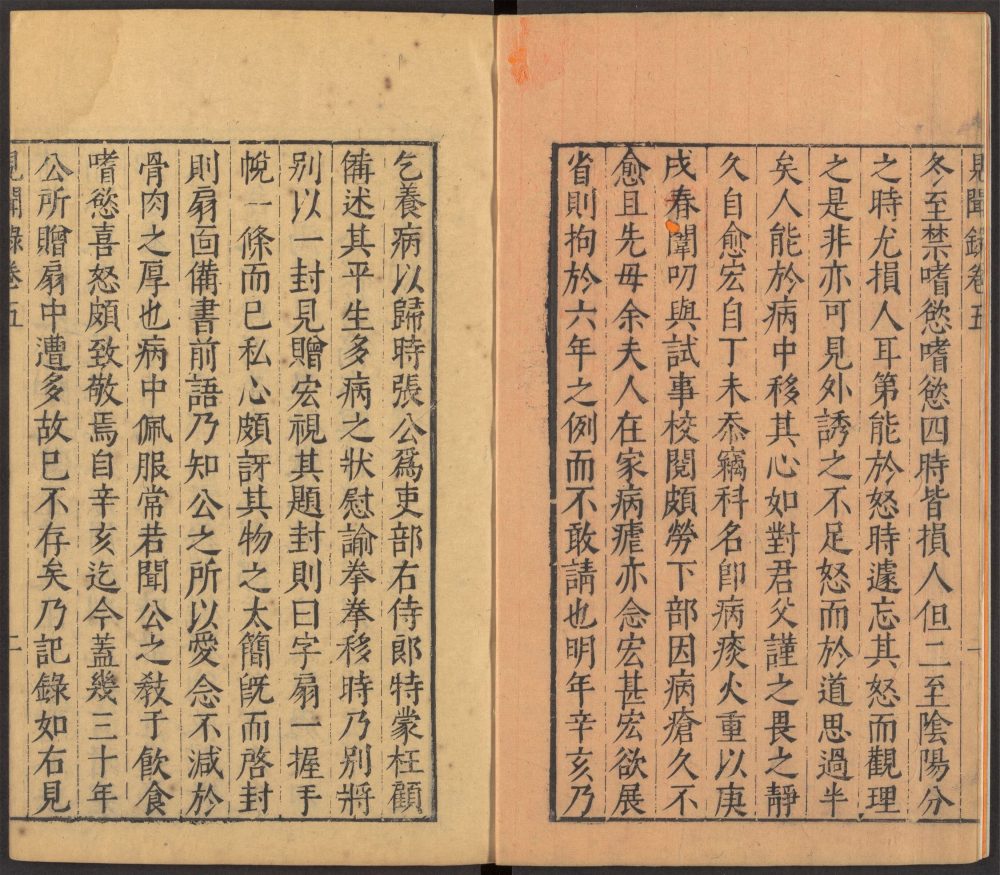 見聞錄卷五 一
冬至禁嗜慾嗜慾四時皆損人但二至陰陽分
之時尤損人耳第能於怒時遽忘其怒而觀理
之是非亦可見外誘之不足怒而於道思過半
矣人能於病中移其心如對君父謹之畏之靜
久自愈宏自丁未忝竊科名卽病痰火重以庚
戌春闈叨與試事校閱頗勞下部因病瘡久不
愈且先母余夫人在家病瘧亦念宏甚宏欲展
省則拘於六年之例而不敢請也明年辛亥乃
乞養病以歸時張公爲吏部右侍郎特蒙枉顧
備述其平生多病之狀慰諭拳拳移時乃別將
別以一封見贈宏視其題封則曰字扇一握手
帨一條而已私心頗訝其物之太簡旣而啓封
則扇面備書前語乃知公之所以愛念不減於
骨肉之厚也病中佩服常若聞公之教于飲食
嗜慾喜怒頗致敬焉自辛亥迄今蓋幾三十年
公所贈扇中遭多故已不存矣乃記錄如右見
見聞錄卷五 二